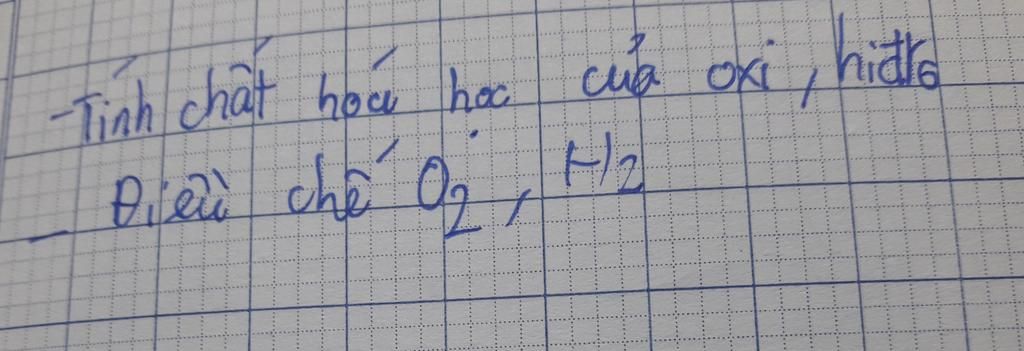 - Tính chất hoá học của oxi, hiđrô
- Điều chế O2, H2